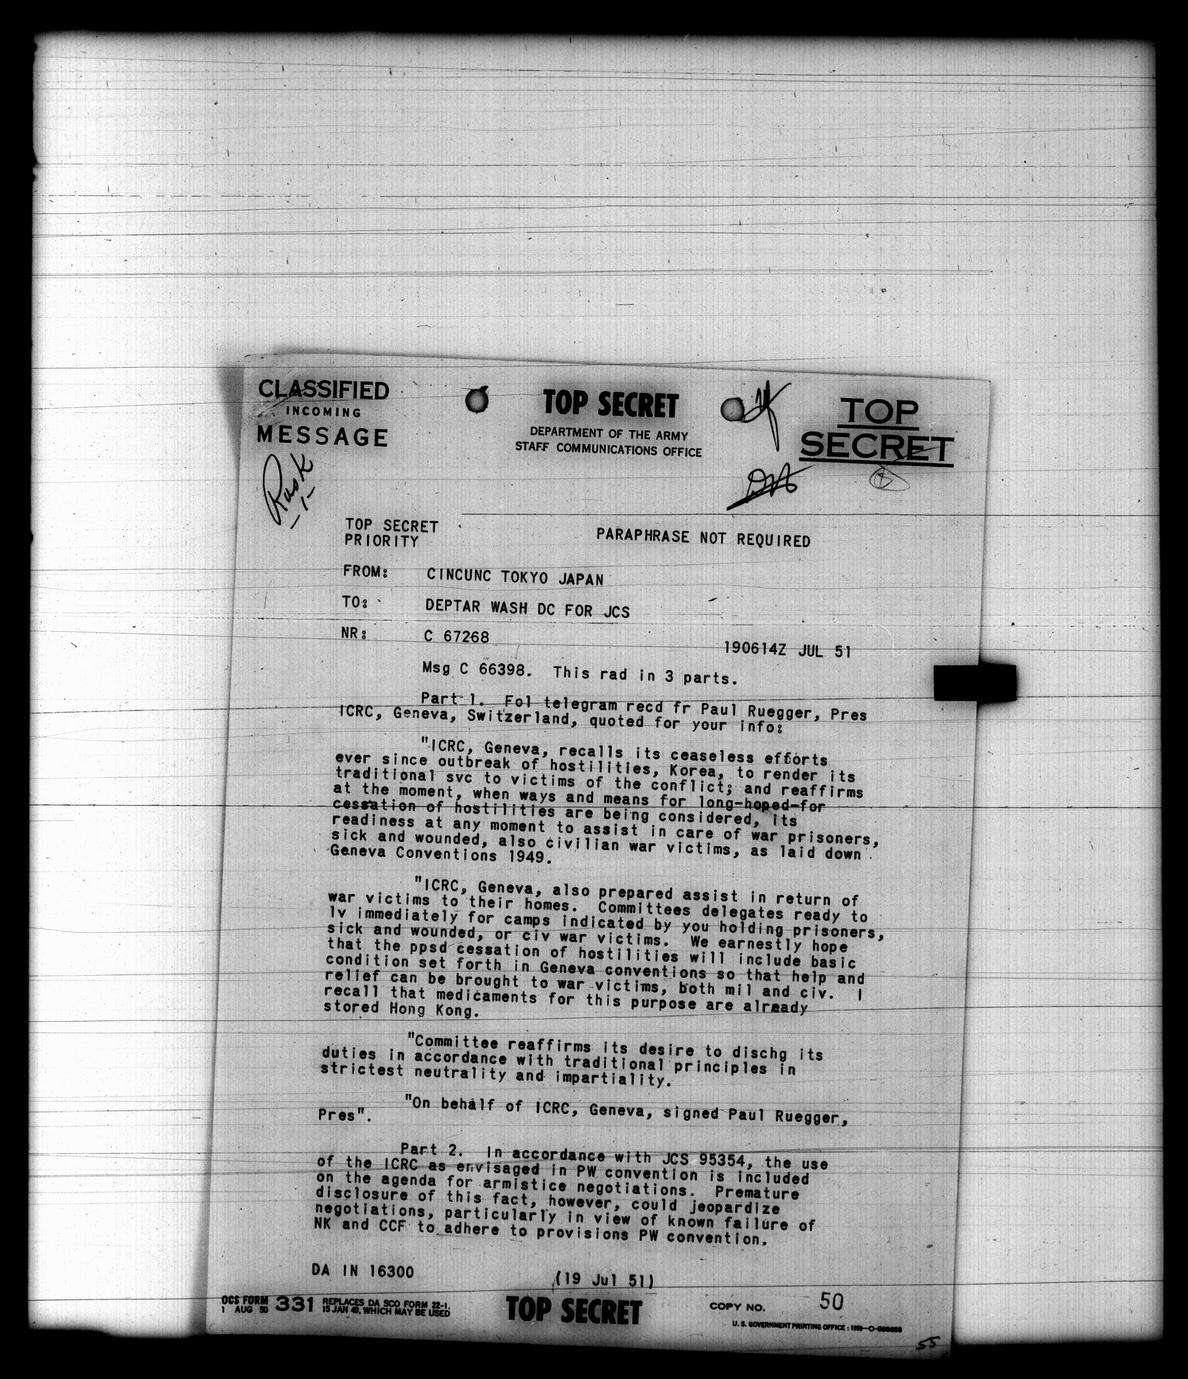 CLASSIFIED
INCOMING
MESSAGE
TOP SECRET
DEPARTMENT OF THE ARMY
STAFF COMMUNICATIONS OFFICE
TOP
SECRET
Rusk
-1-
TOP SECRET
PRIORITY
PARAPHRASE NOT REQUIRED
FROM: CINCUNC TOKYO JAPAN
TO: DEPTAR WASH DC FOR JCS
NR: C 67268 190614Z JUL 51
Msg C 66398. This rad in 3 parts.
Part 1. Fol telegram recd fr Paul Ruegger, Pres
ICRC, Geneva, Switzerland, quoted for your info:
"ICRC, Geneva, recalls its ceaseless efforts
ever since outbreak of hostilities, Korea, to render its
traditional svc to victims of the conflict; and reaffirms
at the moment, when ways and means for long-hoped-for
cessation of hostilities are being considered, its
readiness at any moment to assist in care of war prisoners,
sick and wounded, also civilian war victims, as laid down
Geneva Conventions 1949.
"ICRC, Geneva, also prepared assist in return of
war victims to their homes. Committees delegates ready to
lv immediately for camps indicated by you holding prisoners,
sick and wounded, or civ war victims. We earnestly hope
that the ppsd cessation of hostilities will include basic
condition set forth in Geneva conventions so that help and
relief can be brought to war victims, both mil and civ. I
recall that medicaments for this purpose are already
stored Hong Kong.
"Committee reaffirms its desire to dischg its
duties in accordance with traditional principles in
strictest neutrality and impartiality.
"On behalf of ICRC, Geneva, signed Paul Ruegger,
Pres".
Part 2. In accordance with JCS 95354, the use
of the ICRC as envisaged in PW convention is included
on the agenda for armistice negotiations. Premature
disclosure of this fact, however, could jeopardize
negotiations, particularly in view of known failure of
NK and CCF to adhere to provisions PW convention.
DA IN 16300 (19 Jul 51)
OCS FORM 331 REPLACES DA SCO FORM 22-1,
1 AUG 50 15 JAN 49, WHICH MAY BE USED
TOP SECRET
COPY NO. 50
U. S. GOVERNMENT PRINTING OFFICE
55